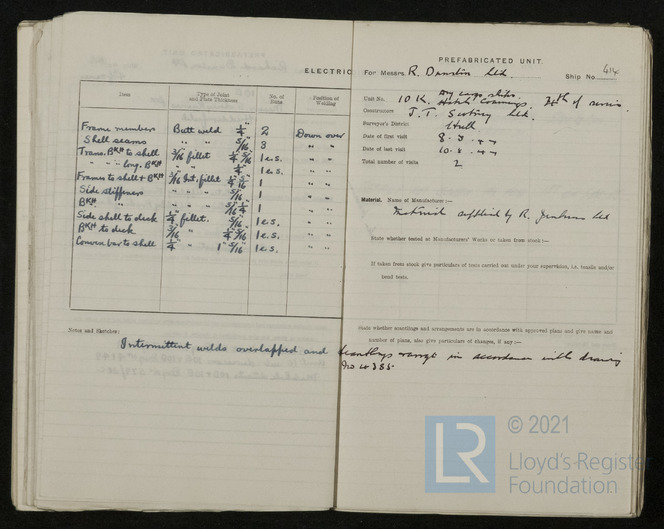 ELECTRIC
Item
Type of Joint and Plate Thickness
No. of Runs
Position of Welding
Frame members Butt weld 1/4" 2 Down over
Shell seams " " 5/16" 3 " "
Trans. BKH to shell 3/16 fillet 1/4" 5/16" 1 e.s. " "
" " long. BKH " " 1/4" 1 e.s. " "
Frames to shell + BKH 3/16 Int. fillet 1/4" 5/16" 1 " "
Side stiffeners " " 5/16" 1 " "
BKH " " " 5/16" 1/4" 1 " "
Side shell to deck 1/4" fillet. 5/16" 1 e.s. " "
BKH to deck 3/16 " 1/4" 5/16" 1 e.s. " "
Convex bar to shell 1/4" " 1" 5/16" 1 e.s. " "
Notes and Sketches:
Intermittent welds overlapped and
PREFABRICATED UNIT.
For Messrs. R. Dunston Ltd. Ship No. 414
Dry cargo ships.
Unit No. 10 K. Hatch Coamings.
Constructors J. T. Ltd.
Surveyor's District Hull
Date of first visit 8.3.
Date of last visit 10.8.
Total number of visits 2
Material. Name of Manufacturer :—
Material supplied by R. Ltd
State whether tested at Manufacturers' Works or taken from stock :—
If taken from stock give particulars of tests carried out under your supervision, i.e. tensile and/or
bend tests.
State whether scantlings and arrangements are in accordance with approved plans and give name and
number of plans, also give particulars of changes, if any :—
Scantlings in accordance with drawing
No
© 2021
LR
Lloyd's Register
Foundation
Surveyor.